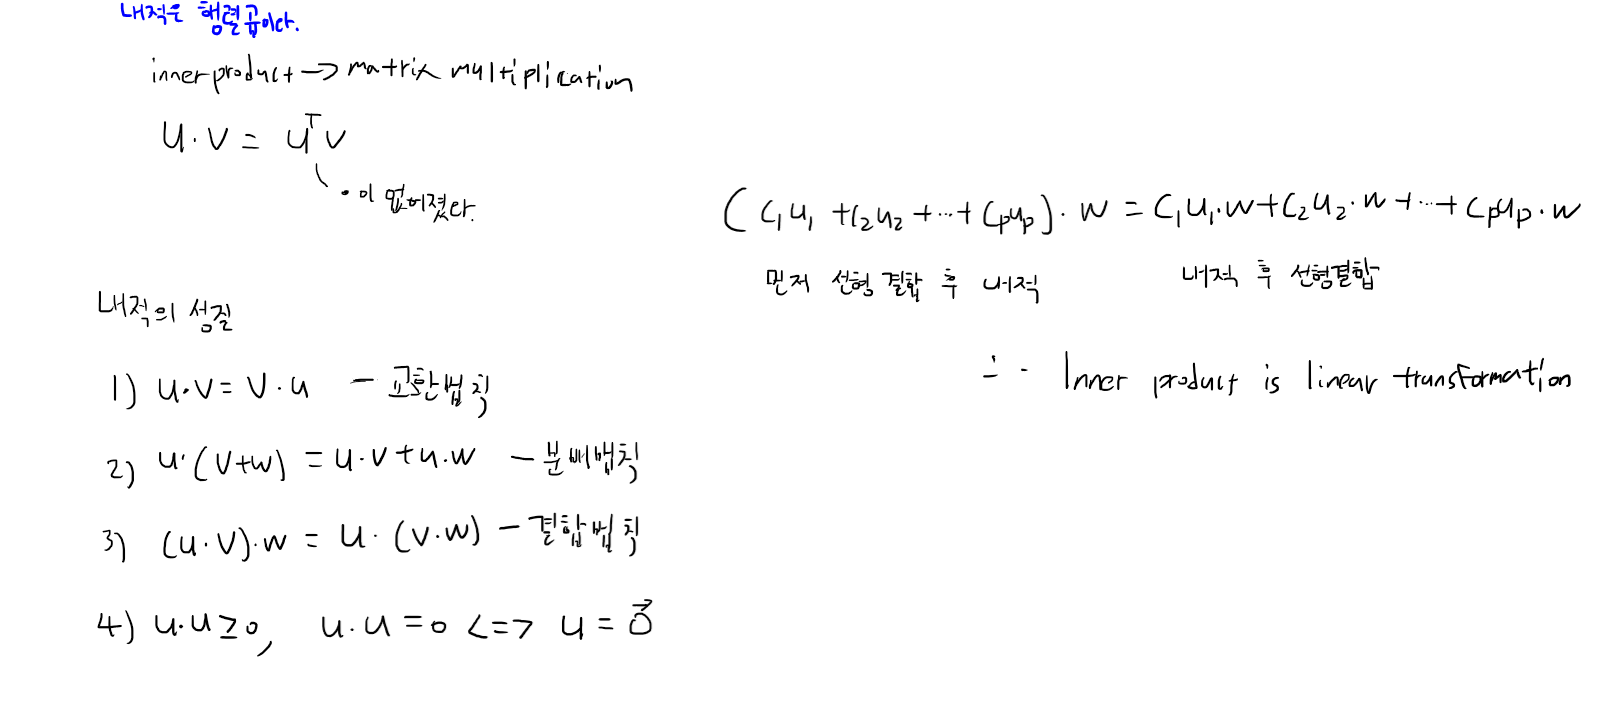 내적은 행렬곱이다.
inner product → matrix multiplication
u · v = uᵀv
· 이 없어졌다.
내적의 성질
1) u · v = v · u - 교환법칙
2) u · (v+w) = u · v + u · w - 분배법칙
3) (u · v) · w = u · (v · w) - 결합법칙
4) u · u ≥ 0, u · u = 0 <=> u = 0⃗
(c₁u₁ + c₂u₂ + ... + cₚuₚ) · w = c₁u₁ · w + c₂u₂ · w + ... + cₚuₚ · w
먼저 선형결합 후 내적 내적 후 선형결합
∴ Inner product is linear transformation